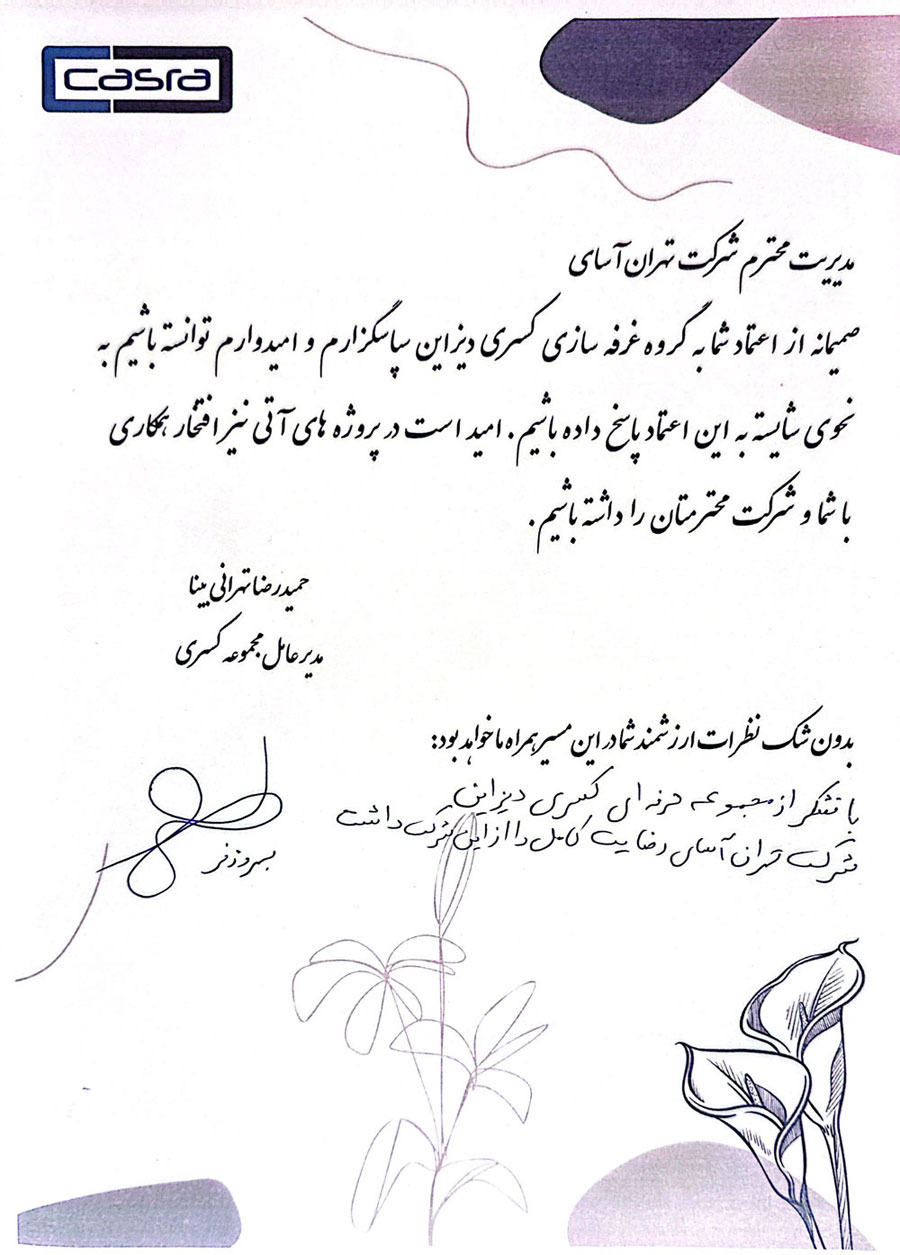 casra
مدیریت محترم شرکت تهران آسای
صمیمانه از اعتماد شما به گروه غرفه سازی کسری دیزاین سپاسگزارم و امیدوارم توانسته باشیم به
نحوی شایسته به این اعتماد پاسخ داده باشیم. امید است در پروژه های آتی نیز افتخار همکاری
با شما و شرکت محترمتان را داشته باشیم.
حمیدرضا تهرانی بینا
مدیرعامل مجموعه کسری
بدون شک نظرات ارزشمند شما در این مسیر همراه ما خواهد بود:
با تشکر از مجموعه حرفه ای کسری دیزاین
شرکت تهران آسای رضایت کامل را از این شرکت داشت